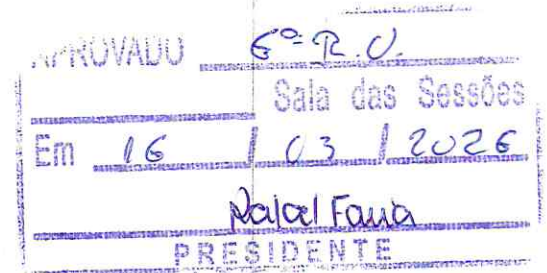 APROVADO 6ª R.O.
Sala das Sessões
Em 16 / 03 / 2026
Rafael Faria
PRESIDENTE